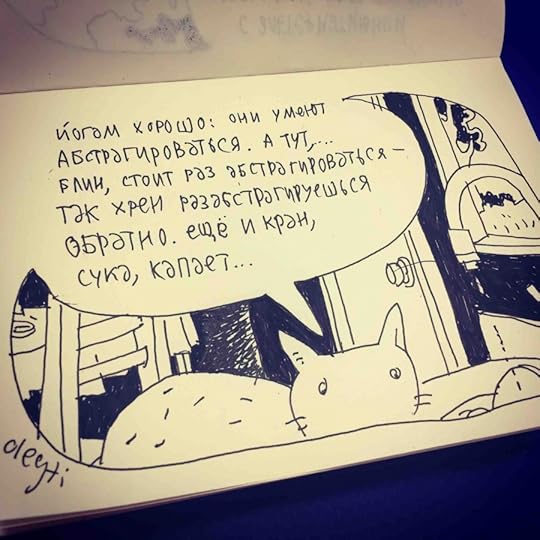 йогам хорошо: они умеют
абстрагироваться. а тут,...
блин, стоит раз абстрагироваться –
так хрен разабстрагируешься
обратно. ещё и кран,
сука, капает...
olegti